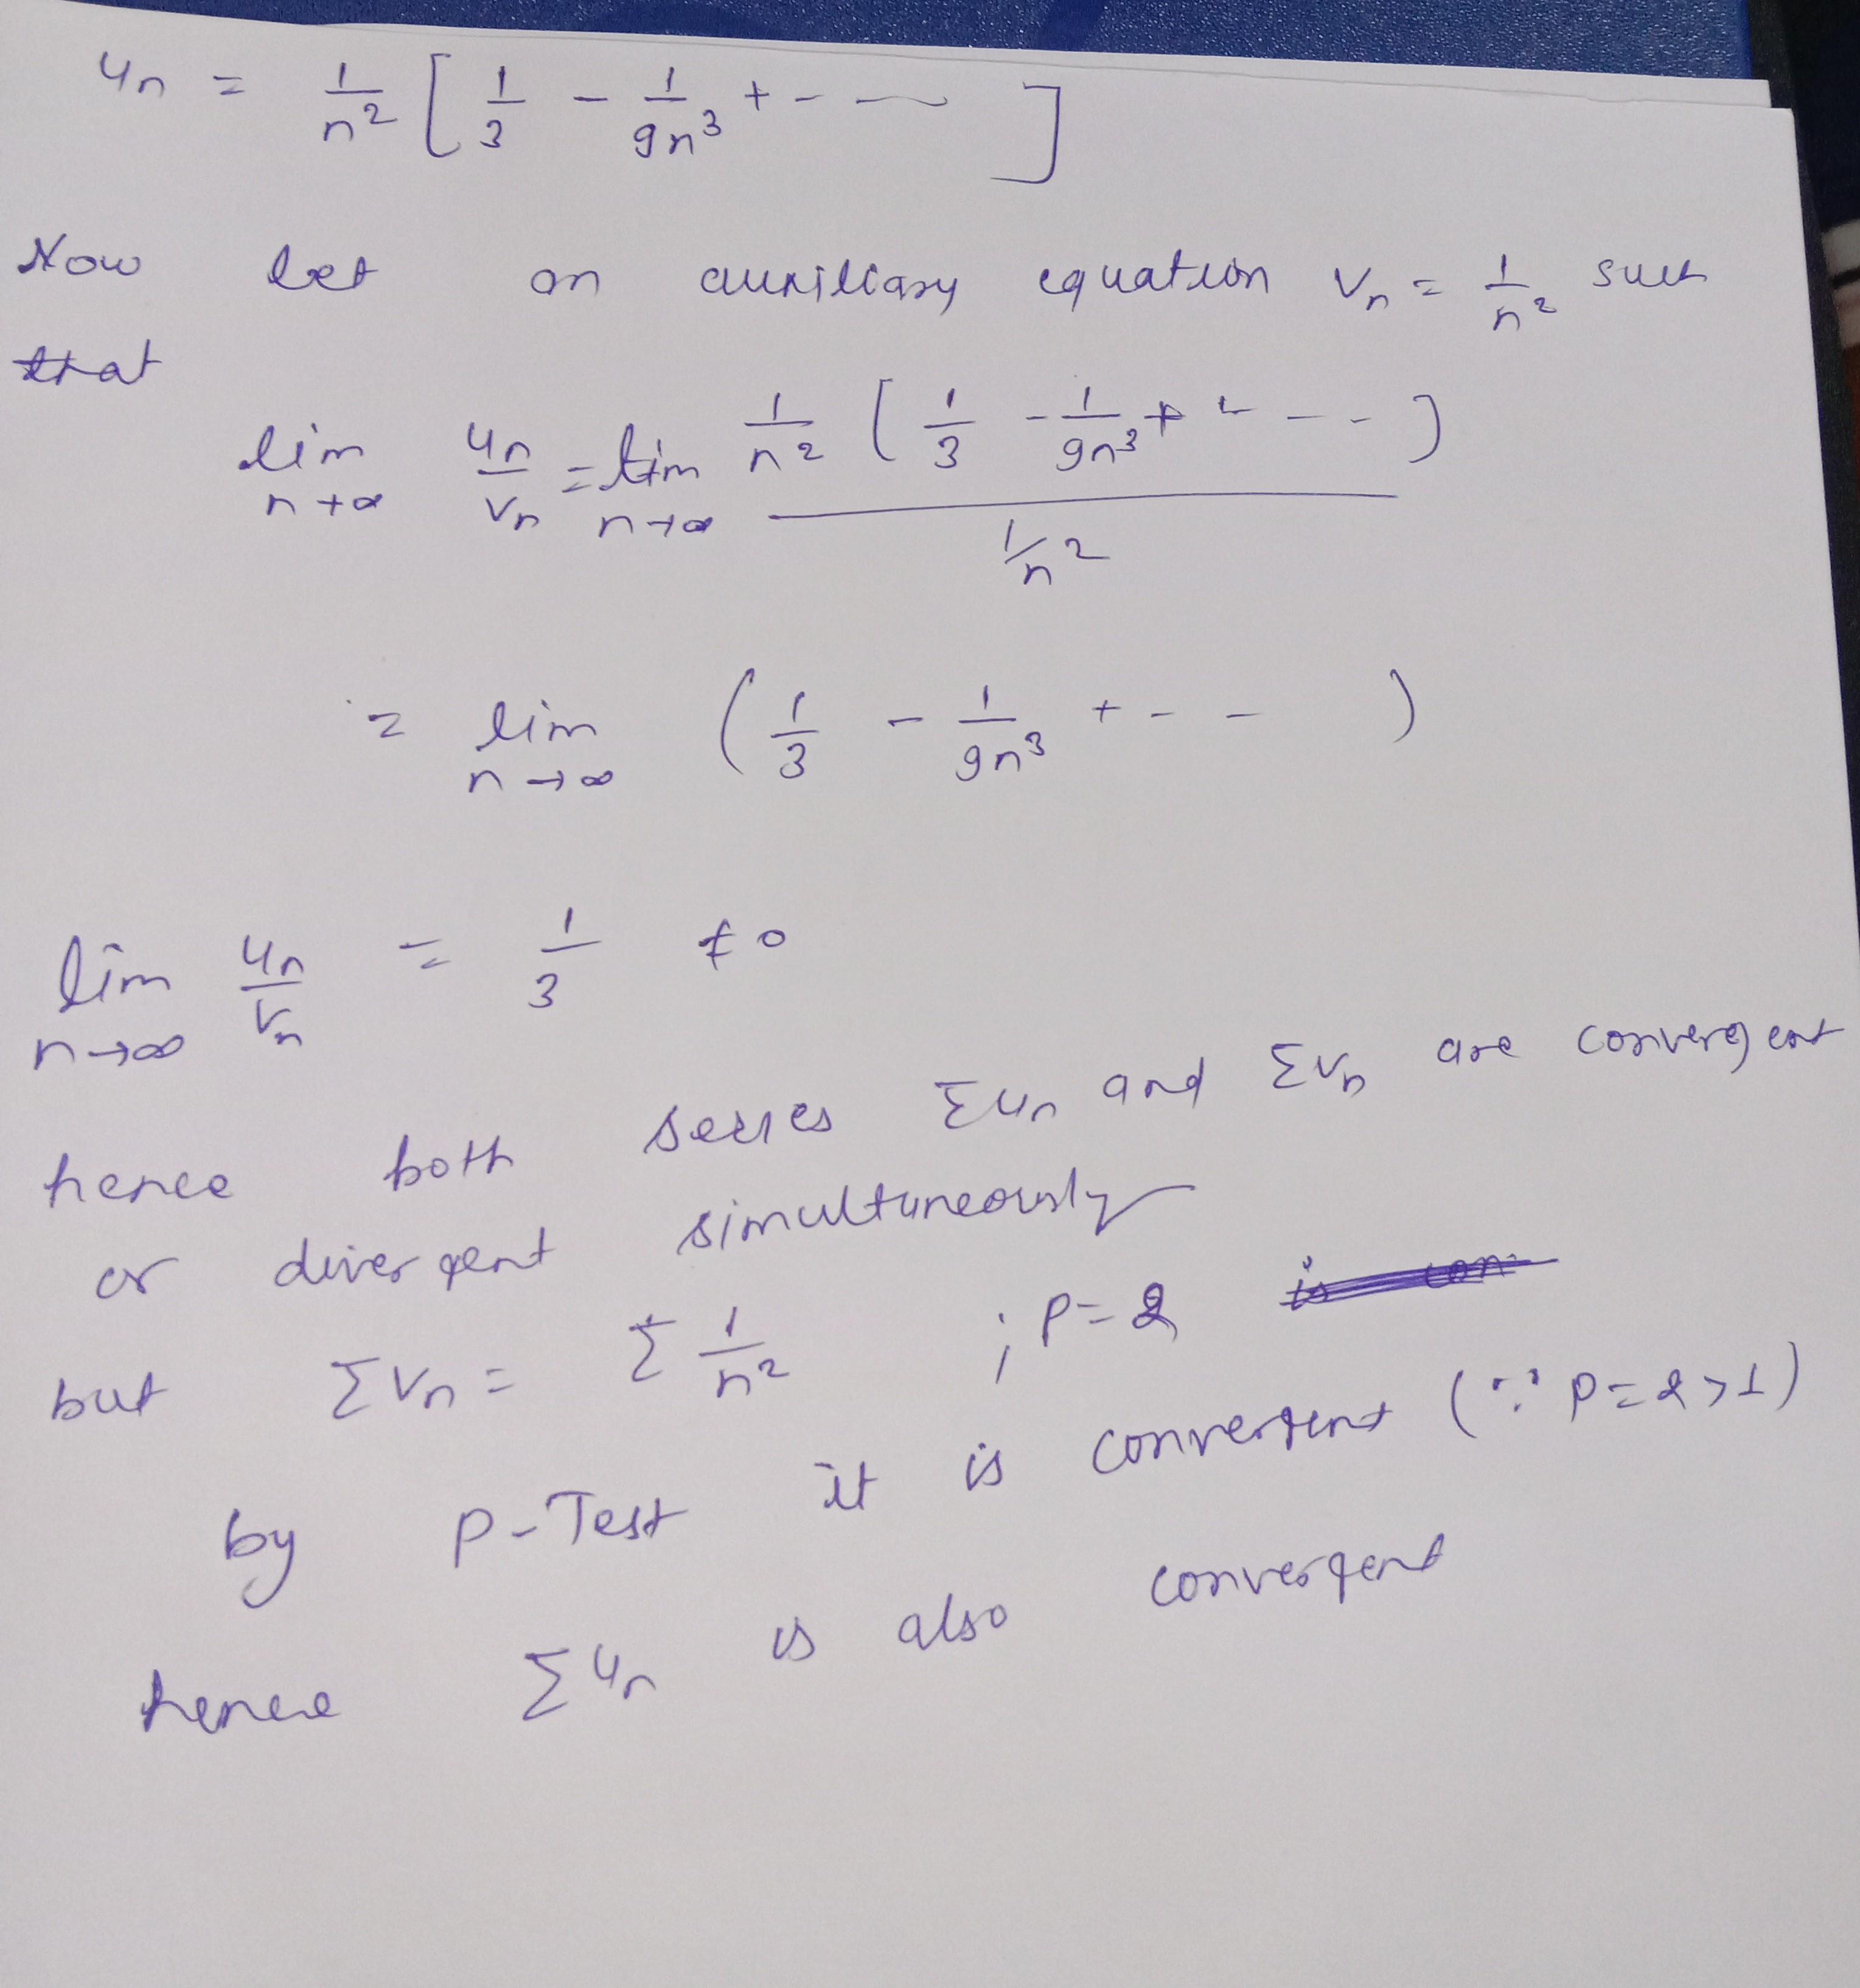 un = 1/n² [ 1/3 - 1/9n³ + - - ]
Now let an auxiliary equation vn = 1/n² such
that
lim n→∞ un/vn = lim n→∞ 1/n² ( 1/3 - 1/9n³ + - - - ) / 1/n²
= lim n→∞ ( 1/3 - 1/9n³ + - - )
lim n→∞ un/vn = 1/3 ≠ 0
hence both series Σun and Σvn are convergent
or divergent simultaneously
but Σvn = Σ 1/n² ; p=2
by p-Test it is convergent (∵ p=2>1)
hence Σun is also convergent